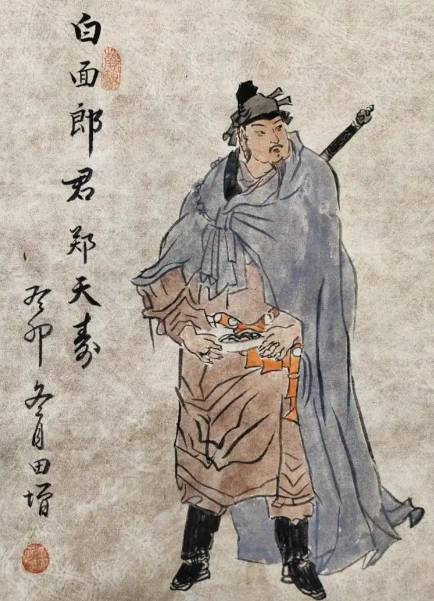 白面郎君郑天寿
癸卯冬月田增